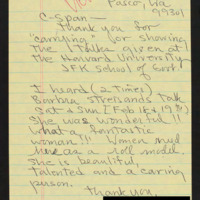 Pasco, Wa.
99301
C-Span —
Thank you for
"carrying" or showing
the Talks given at
the Harvard University
JFK School of Govt!
I heard (2 times)
Barbra Streisands Talk
Sat & Sun (Feb 18 & 19th)
She was wonderful!!
What a fantastic
woman!! Women need
her as a roll model.
She is beautiful,
talented and a caring
person.
Thank you,